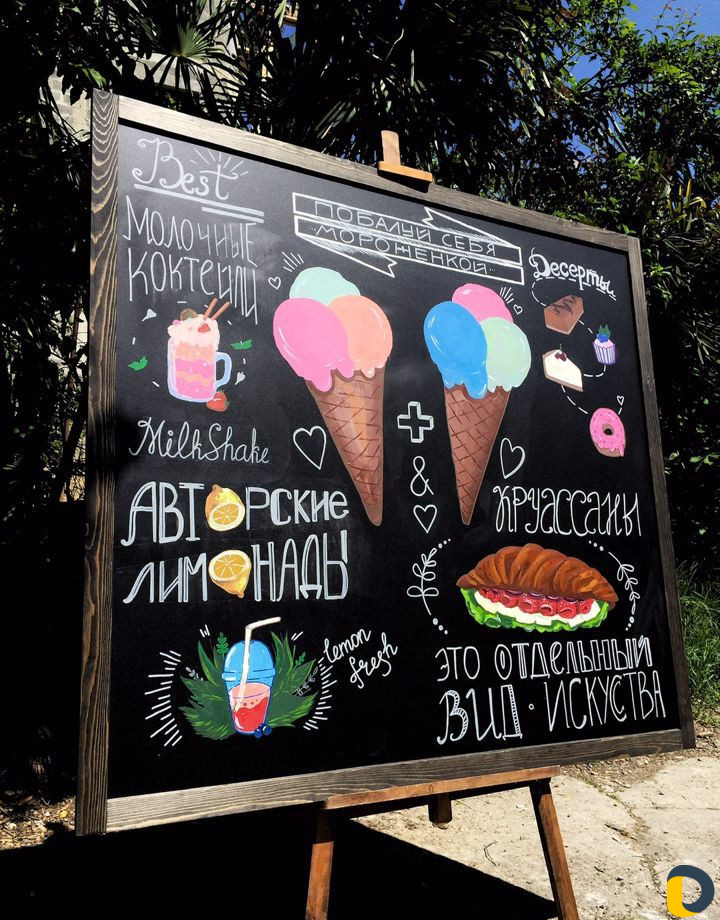 Best
МОЛОЧНЫЕ
КОКТЕЙЛИ
MilkShake
ПОБАЛУЙ СЕБЯ
МОРОЖЕНКОЙ
Десерты
+
&
АВТОРСКИЕ
ЛИМОНАДЫ
lemon
fresh
КРУАССАНЫ
ЭТО ОТДЕЛЬНЫЙ
ВИД · ИСКУСТВА